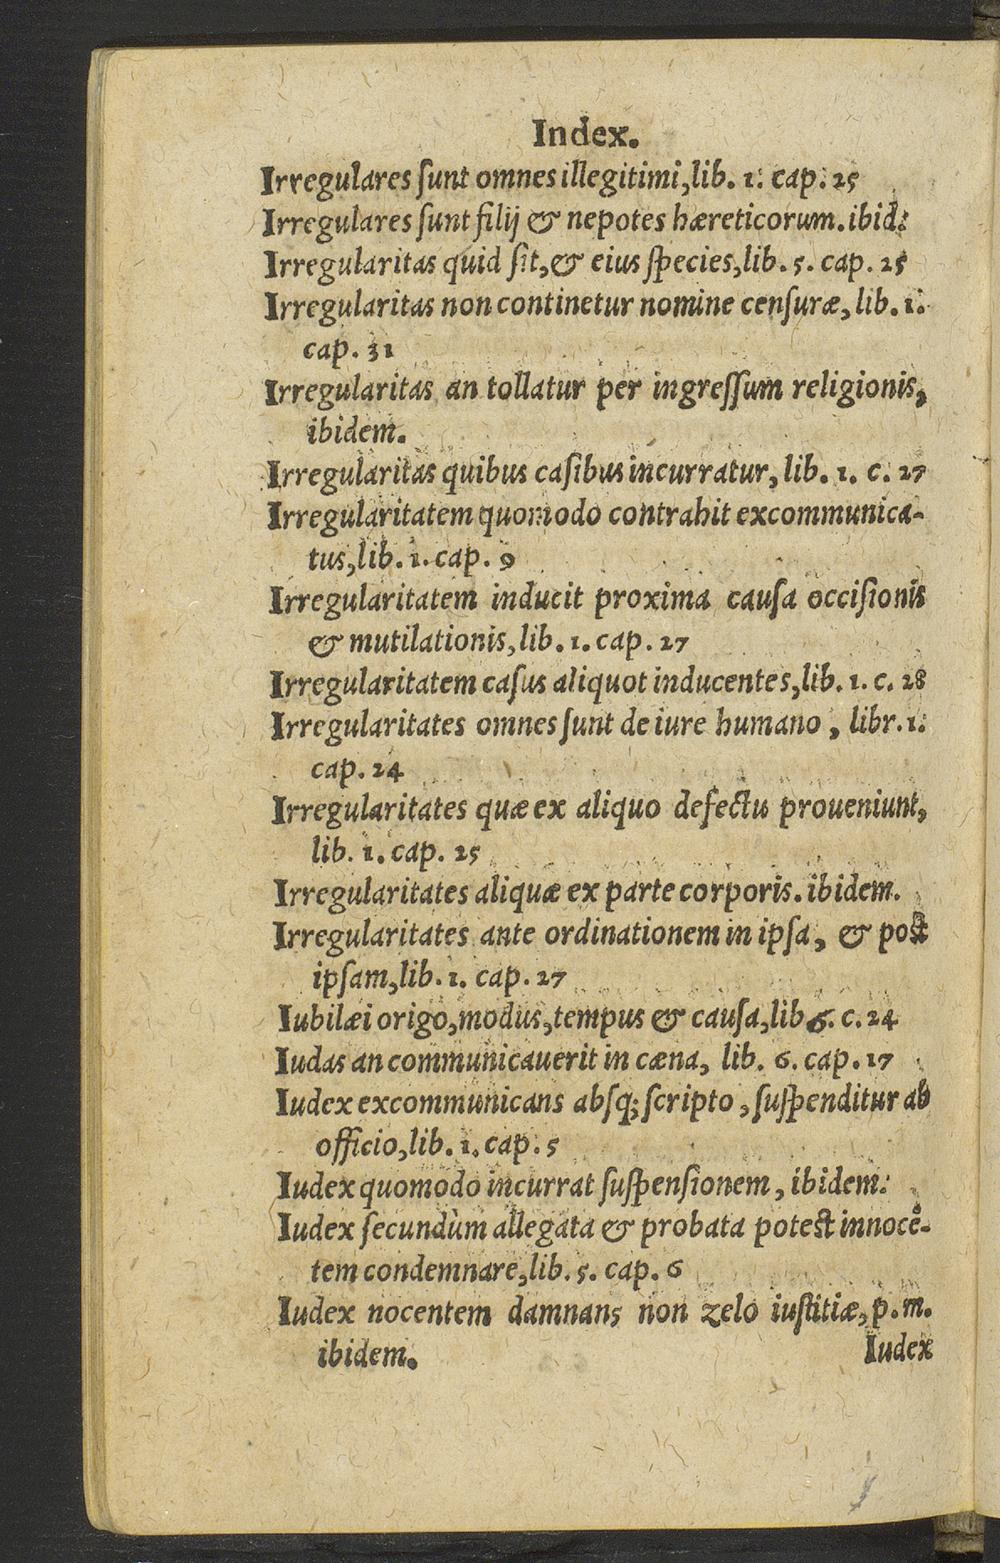 Index.
Irregulares ſunt omnes illegitimi, lib. 1. cap. 25
Irregulares ſunt filij & nepotes hæreticorum. ibid.
Irregularitas quid ſit, & eius ſpecies, lib. 5. cap. 25
Irregularitas non continetur nomine cenſuræ, lib. 1.
cap. 31
Irregularitas an tollatur per ingreſſum religionis,
ibidem.
Irregularitas quibus caſibus incurratur, lib. 1. c. 27
Irregularitatem quomodo contrahit excommunica-
tus, lib. 1. cap. 9
Irregularitatem inducit proxima cauſa occiſionis
& mutilationis, lib. 1. cap. 27
Irregularitatem caſus aliquot inducentes, lib. 1. c. 28
Irregularitates omnes ſunt de iure humano, libr. 1.
cap. 24
Irregularitates quæ ex aliquo defectu proueniunt,
lib. 1. cap. 25
Irregularitates aliquæ ex parte corporis. ibidem.
Irregularitates ante ordinationem in ipſa, & poſt
ipſam, lib. 1. cap. 27
Iubilæi origo, modus, tempus & cauſa, lib 6. c. 24
Iudas an communicauerit in cæna, lib. 6. cap. 17
Iudex excommunicans abſq; ſcripto, ſuſpenditur ab
officio, lib. 1. cap. 5
Iudex quomodo incurrat ſuſpenſionem, ibidem.
Iudex ſecundùm allegata & probata poteſt innocē-
tem condemnare, lib. 5. cap. 6
Iudex nocentem damnans non zelo iuſtitiæ, p. m.
ibidem.
Iudex